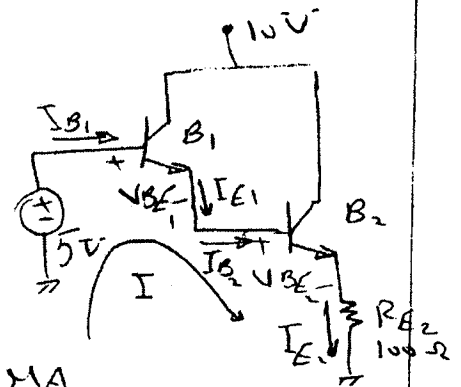 10V
I_B1
B1
+
V_BE1
-
I_E1
B2
5V
I_B2
+
V_BE2
-
I
I_E2
R_E2
100Ω
MA